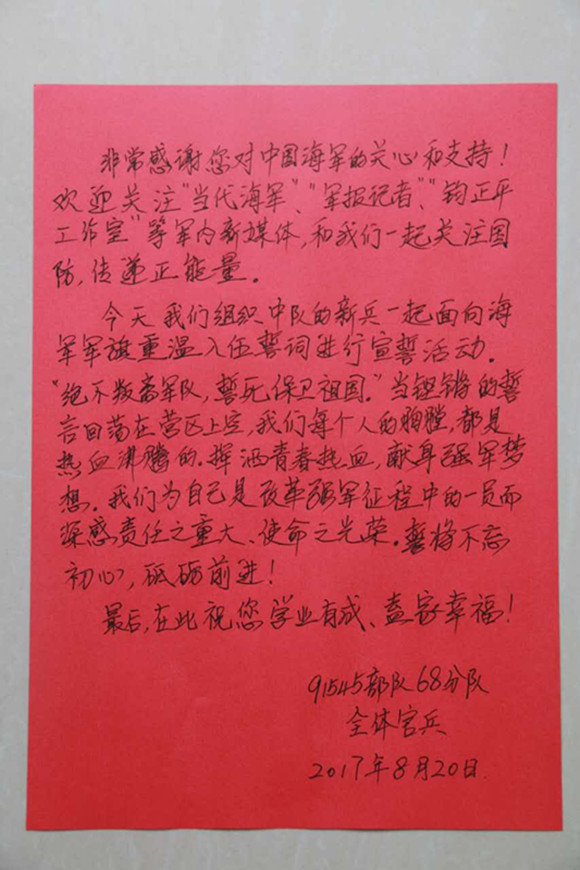 非常感谢您对中国海军的关心和支持！
欢迎关注“当代海军”、“军报记者”、“钧正平
工作室”等军内新媒体，和我们一起关注国
防，传递正能量。
今天我们组织中队的新兵一起面向海
军军旗重温入伍誓词进行宣誓活动。
“绝不叛离军队，誓死保卫祖国。”当铿锵的誓
言回荡在营区上空，我们每个人的胸膛，都是
热血沸腾的。挥洒青春热血，献身强军梦
想。我们为自己是改革强军征程中的一员而
深感责任之重大、使命之光荣。誓将不忘
初心，砥砺前进！
最后，在此祝您学业有成、阖家幸福！
91545部队68分队
全体官兵
2017年8月20日.